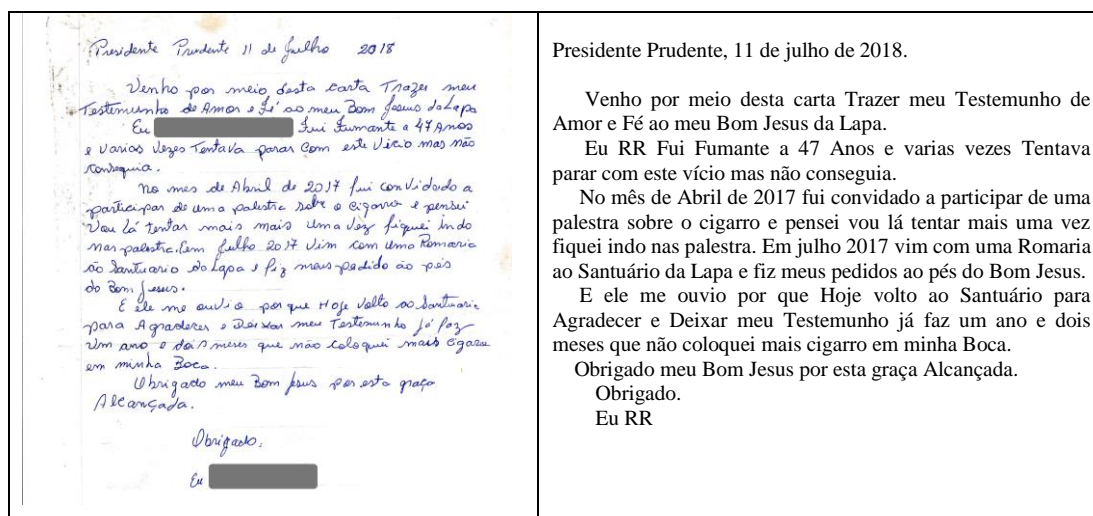 Presidente Prudente 11 de Julho 2018
Venho por meio desta carta Trazer meu
Testemunho de Amor e Fé ao meu Bom Jesus da Lapa
Eu Fui Fumante a 47 Anos
e varias vezes Tentava parar com este Vicio mas não
conseguia.
no mes de Abril de 2017 fui conVidado a
participar de uma palestra sobre o cigarro e pensei
Vou Lá tentar mais mais Uma Vez fiquei indo
nas palestra. Em Julho 2017 Vim com uma Romaria
ao Santuario da Lapa e fiz meus pedido ao pés
do Bom Jesus.
E ele me ouvio por que Hoje Volto ao Santuario
para Agradecer e Deixar meu Testemunho já faz
Um ano e dois meses que não coloquei mais cigarro
em minha Boca.
Obrigado meu Bom Jesus por esta graça
Alcançada.
Obrigado.
Eu
Presidente Prudente, 11 de julho de 2018.
Venho por meio desta carta Trazer meu Testemunho de
Amor e Fé ao meu Bom Jesus da Lapa.
Eu RR Fui Fumante a 47 Anos e varias vezes Tentava
parar com este vício mas não conseguia.
No mês de Abril de 2017 fui convidado a participar de uma
palestra sobre o cigarro e pensei vou lá tentar mais uma vez
fiquei indo nas palestra. Em julho 2017 vim com uma Romaria
ao Santuário da Lapa e fiz meus pedidos ao pés do Bom Jesus.
E ele me ouvio por que Hoje volto ao Santuário para
Agradecer e Deixar meu Testemunho já faz um ano e dois
meses que não coloquei mais cigarro em minha Boca.
Obrigado meu Bom Jesus por esta graça Alcançada.
Obrigado.
Eu RR